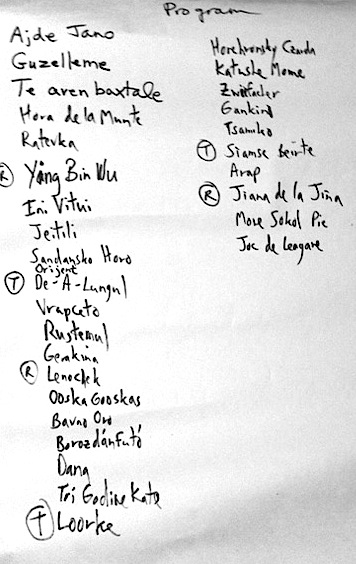 Program
Ajde Jano
Guzelleme
Te aven baxtale
Hora de la Munte
Ratevka
(R) Yang Bin Wu
Eni Vitui
Jeftili
Sandansko Horo
Orijent
(T) De-A-Lungul
Vrapceto
Rustemul
Gerakina
(R) Lenocek
Ooska Gooskas
Bavno Oro
Borozdánfutó
Dana
Tri Godine Kate
(T) Loorke
Horehronsky Czarda
Katushe Mome
Zwiefacher
Gankino
Tsamiko
(T) Siamse Beirte
Arap
(R) Jiana de la Jina
More Sokol Pie
Joc de Leagane